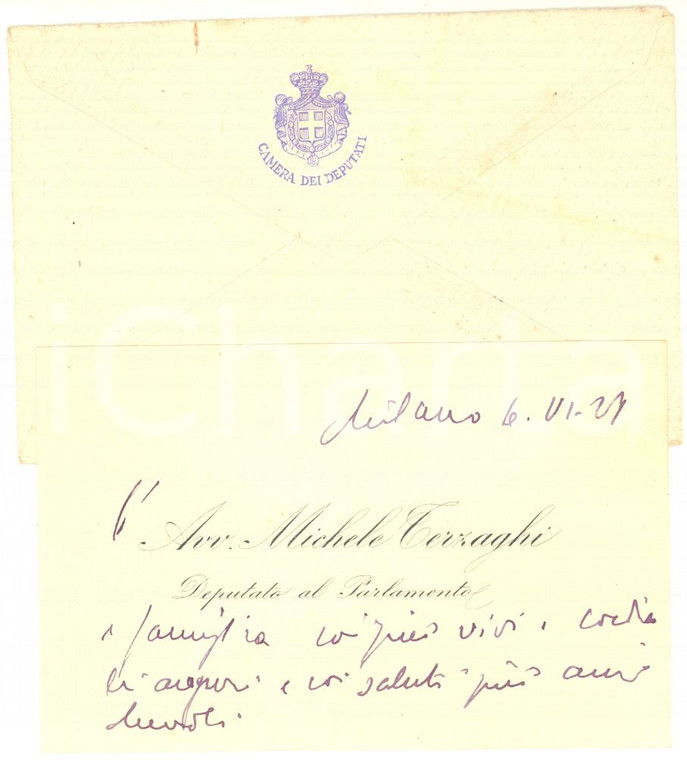 CAMERA DEI DEPUTATI
iCharta
Milano 6. VI. 21
Avv. Michele Terzaghi
Deputato al Parlamento
e famiglia coi più vivi e cordia
li auguri e coi saluti più ami
chevoli.